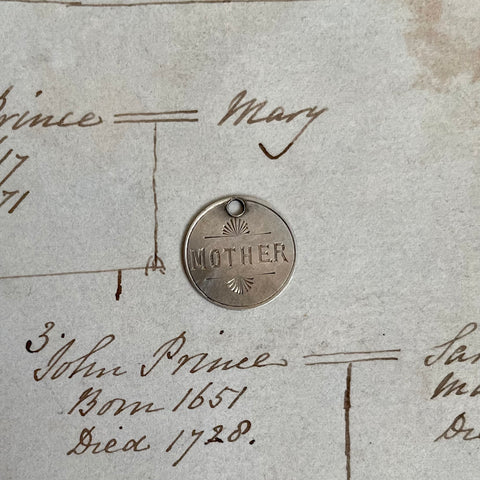 Prince = Mary
17
71
MOTHER
3. John Prince =
Born 1651
Died 1728.